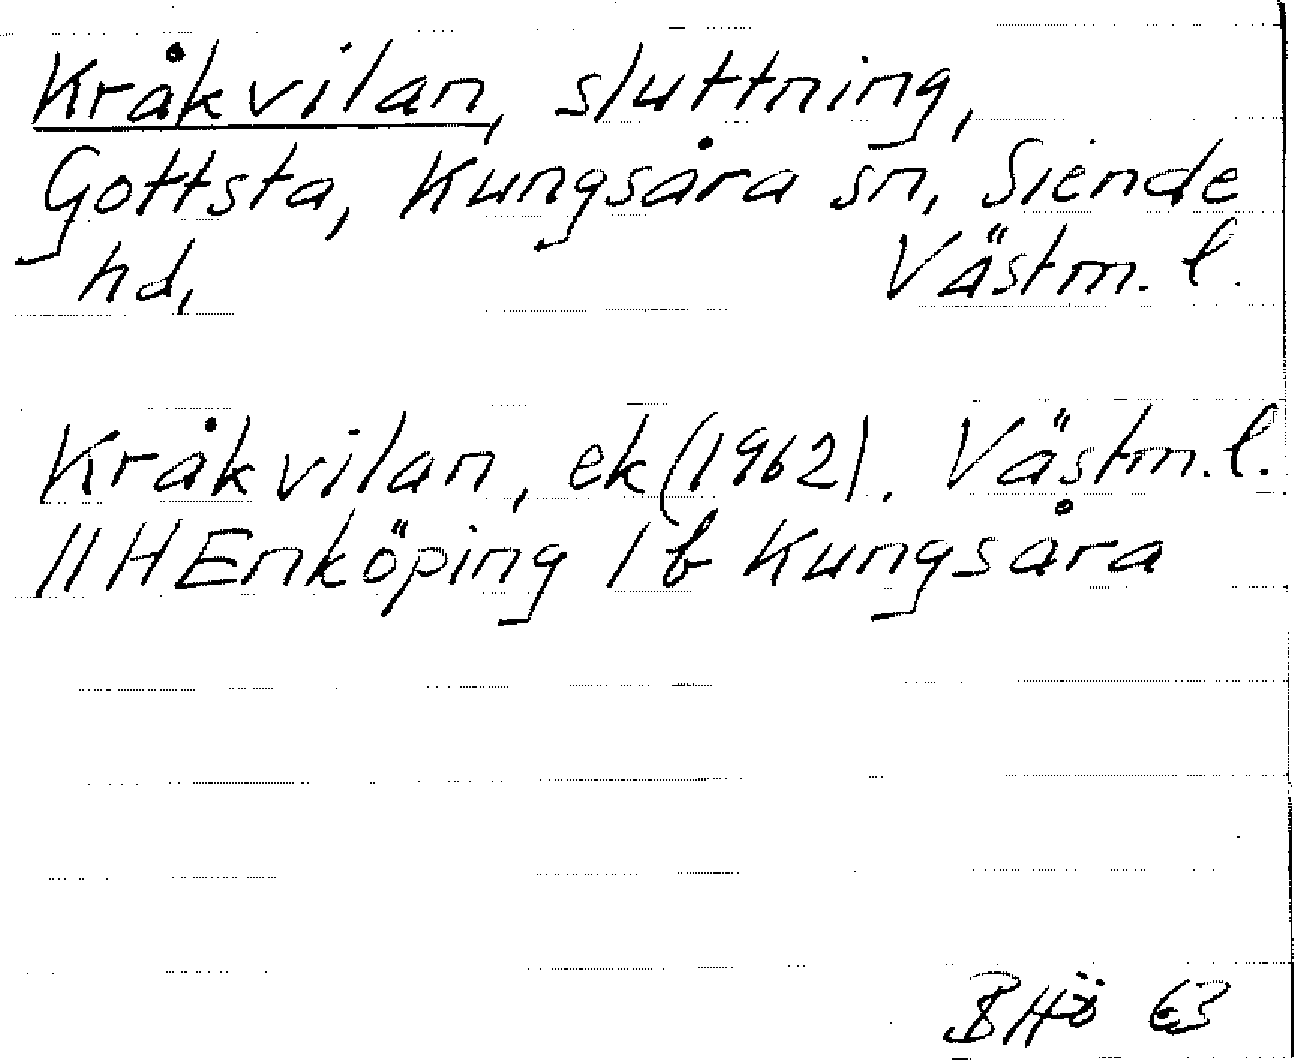 Kråkvilan, sluttning,
Gottsta, Kungsåra sn, Siende
hd, Västm. l.
Kråkvilan, ek (1962). Västm. l.
11 H Enköping 1 b Kungsåra
BHö 63